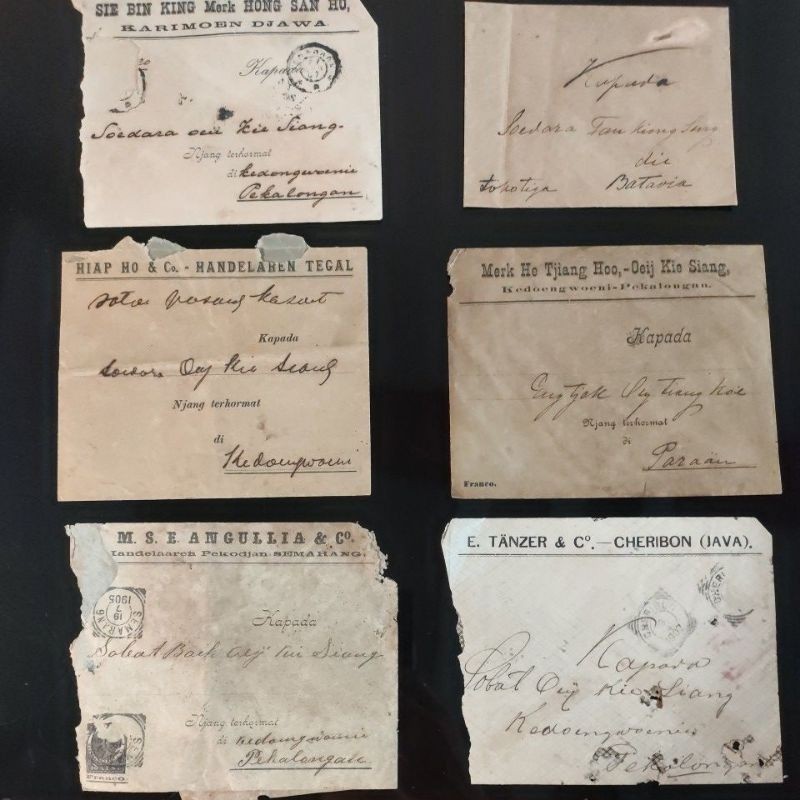 SIE BIN KING Merk HONG SAN HO,
KARIMOEN DJAWA.
Kapada
Soedara oeij Kie Siang.
Njang terhormat
di Kedongwoenie
Pekalongan
Kapada
Soedara Tan Kiong Sing
die
Batavia
HIAP HO & Co. - HANDELAREN TEGAL
Kapada
Soedara Oeij Kie Siang
Njang terhormat
di
Kedongwoeni
Merk Ho Tjiang Hoo,-Oeij Kie Siang,
Kedoengwoeni-Pekalongan.
Kapada
Njang terhormat
di
Paraän
Franco.
M. S. E. ANGULLIA & Co.
Handelaaren Pekodjan SEMARANG.
SEMARANG
19
7
1905
Kapada
Sobat Baek Oeij Kie Siang
Njang terhormat
di Kedongwoenie
Pekalongan
Franco.
E. TÄNZER & Co.—CHERIBON (JAVA).
Kapada
Sobat Oeij Kie Siang
Kedoengwoenie
Pekalongan